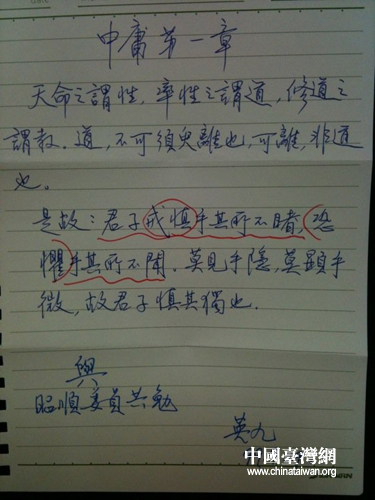 中庸第一章
天命之謂性，率性之謂道，修道之
謂教．道，不可須臾離也，可離，非道
也。
是故：君子戒慎乎其所不睹，恐
懼乎其所不聞．莫見乎隱，莫顯乎
微，故君子慎其獨也．
與
昭順委員共勉
英九
中國臺灣網
www.chinataiwan.org